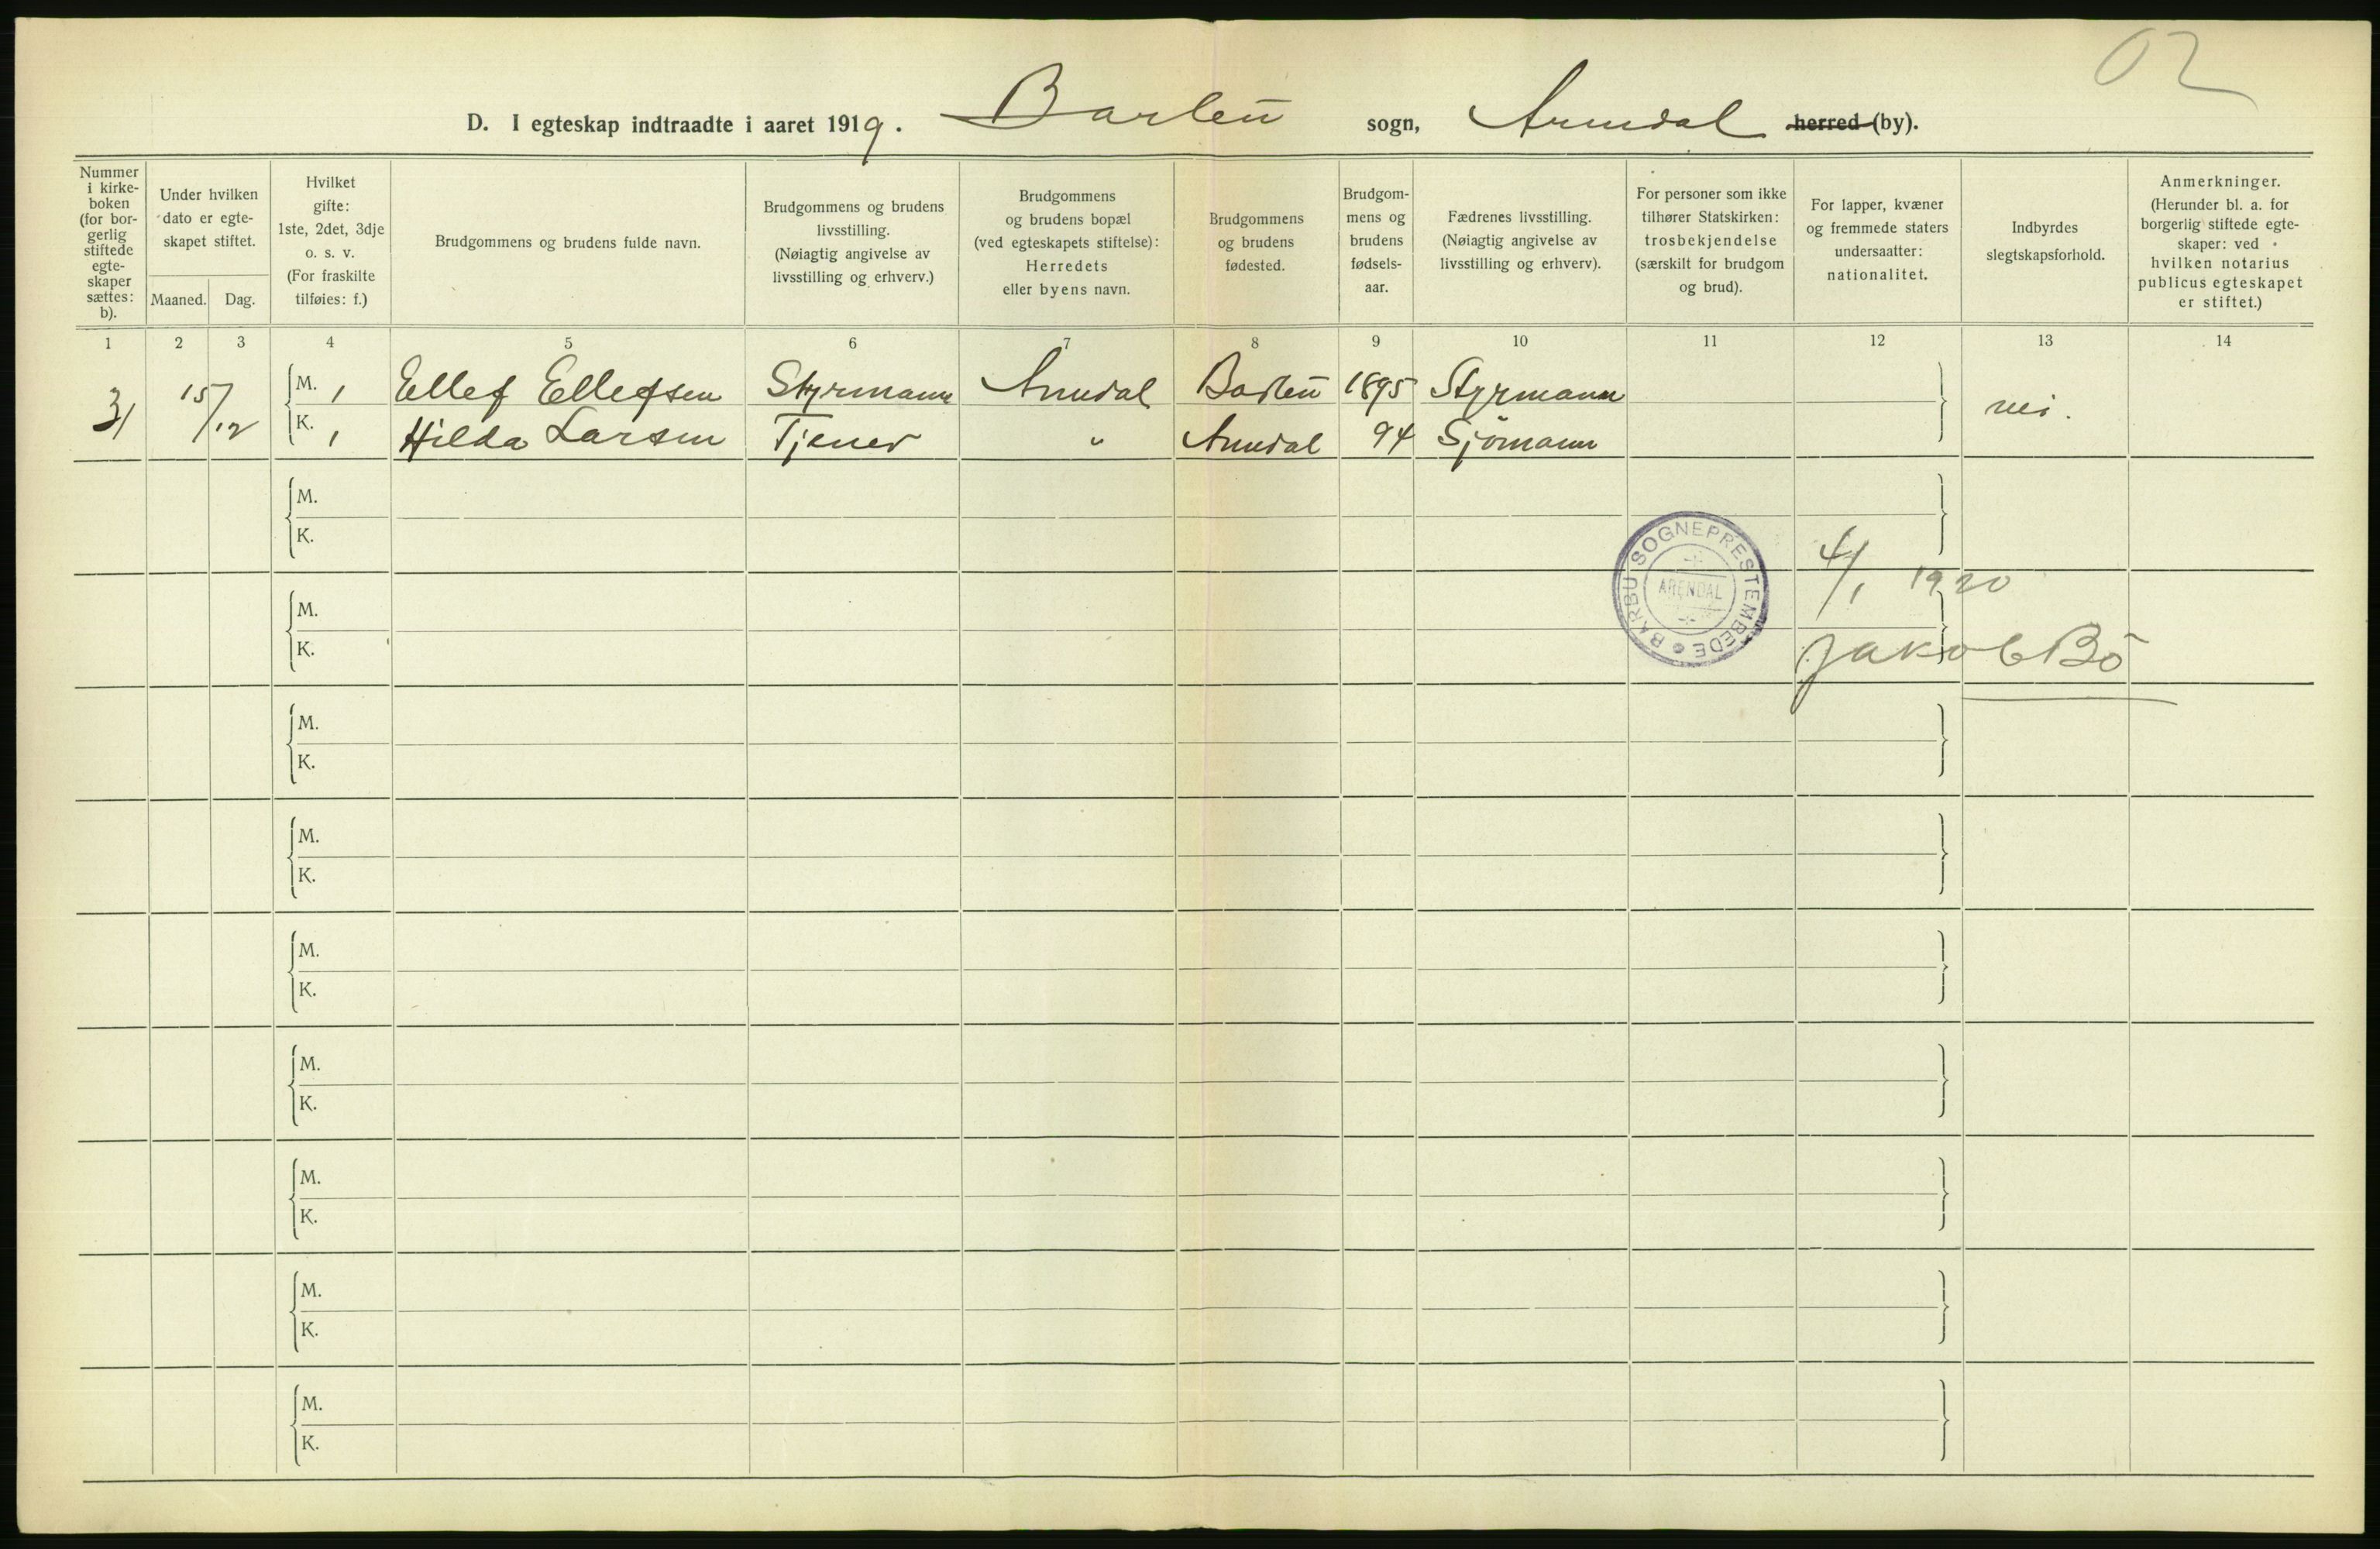 02
D. I egteskap indtraadte i aaret 1919. Barbu sogn, Arendal herred (by).
Nummer i kirke-boken (for bor-gerlig stiftede egte-skaper sættes: b).
Under hvilken dato er egte-skapet stiftet.
Maaned. Dag.
Hvilket gifte: 1ste, 2det, 3dje o. s. v. (For fraskilte tilføies: f.)
Brudgommens og brudens fulde navn.
Brudgommens og brudens livsstilling. (Nøiagtig angivelse av livsstilling og erhverv.)
Brudgommens og brudens bopæl (ved egteskapets stiftelse): Herredets eller byens navn.
Brudgommens og brudens fødested.
Brudgom-mens og brudens fødsels-aar.
Fædrenes livsstilling. (Nøiagtig angivelse av livsstilling og erhverv).
For personer som ikke tilhører Statskirken: trosbekjendelse (særskilt for brudgom og brud).
For lapper, kvæner og fremmede staters undersaatter: nationalitet.
Indbyrdes slegtskapsforhold.
Anmerkninger. (Herunder bl. a. for borgerlig stiftede egte-skaper: ved hvilken notarius publicus egteskapet er stiftet.)
1 2 3 4 5 6 7 8 9 10 11 12 13 14
31 15/12 M. 1 Ellef Ellefsen Styrmann Arendal Barbu 1895 Styrmann nei.
K. 1 Hilda Larsen Tjener " Arendal 94 Sjömann
M.
K.
BARBU SOGNEPRESTEMBEDE
ARENDAL
4/1 1920
Jakob Bö
M.
K.
M.
K.
M.
K.
M.
K.
M.
K.
M.
K.
M.
K.
M.
K.